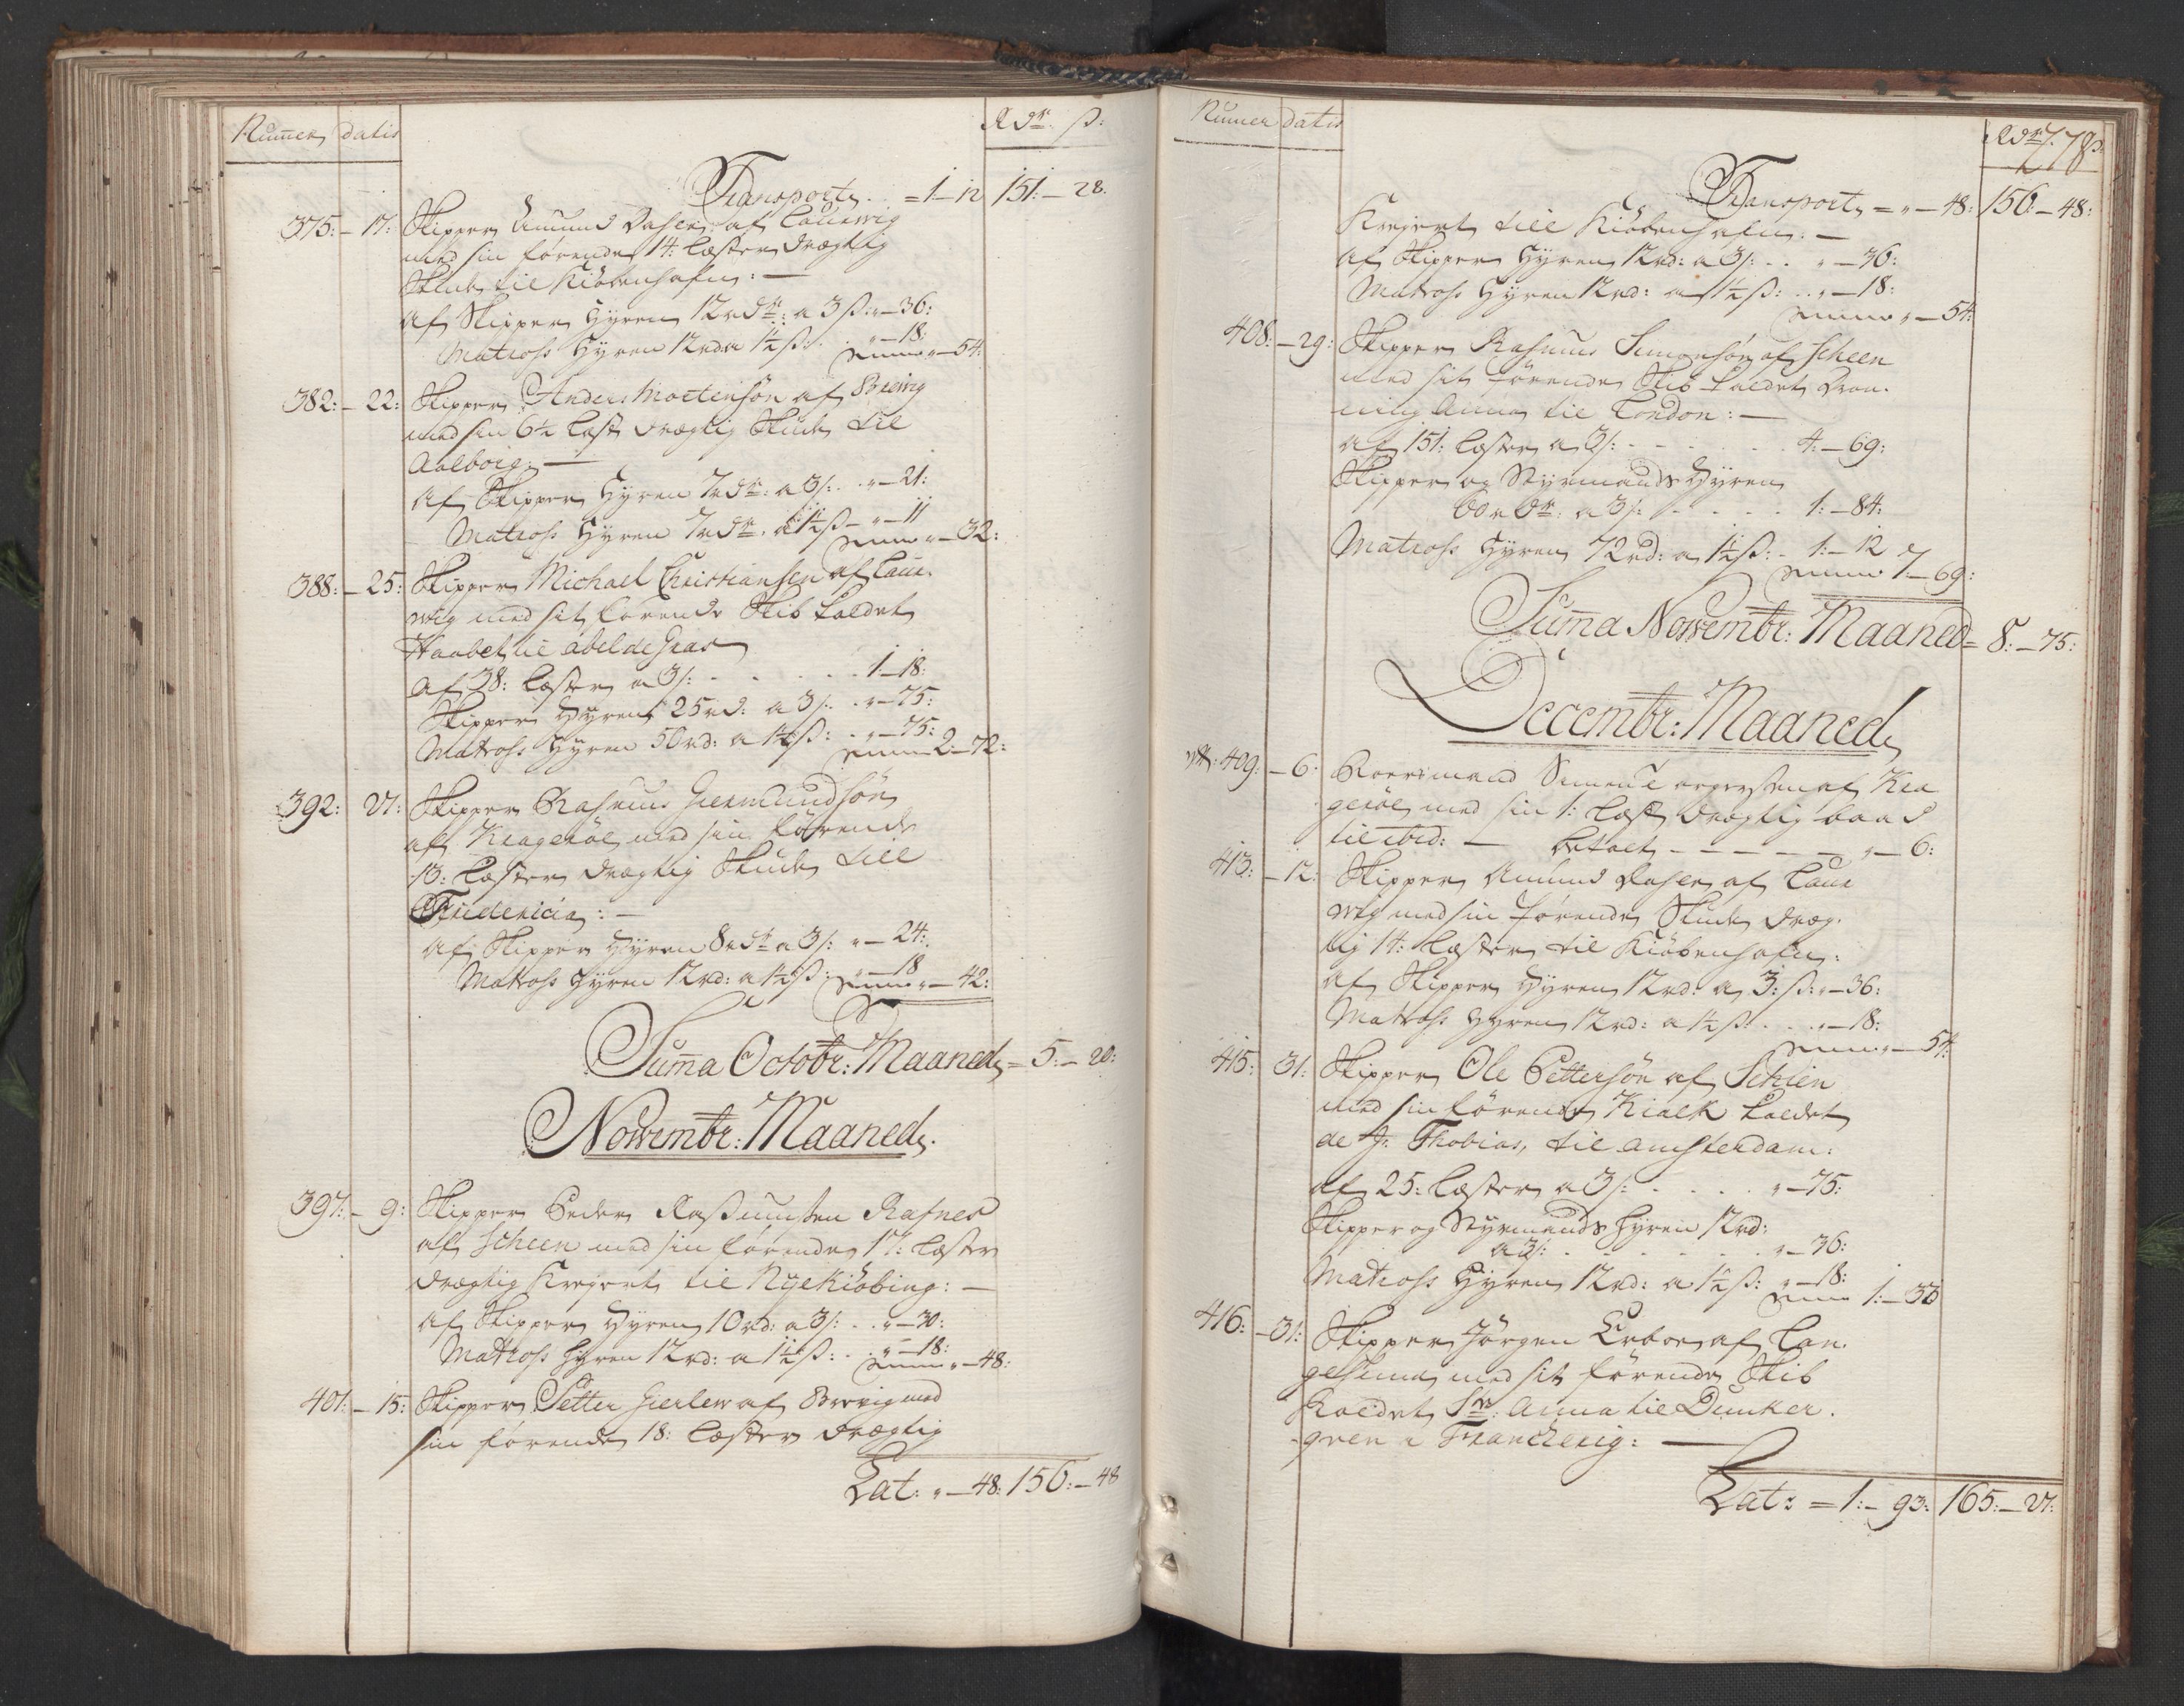 Numer datis Rdr ß:
Transporte = 1 – 12 151: – 28.
375: – 17: Skipper Amund Dahlen af Laurwig
med sin førende 14: Læster drægtig
Skude til Kiöbenhafn: –
Af Skipper Hyren 12 rdr: a 3 ß: " – 36:
Matross Hyren 12 rdr a 1½ ß: " – 18:
Summa " – 54:
382: – 22: Skipper Anders Mortensøn af Brewig
med sin 6½ Læst drægtig Skude til
Aalborg: –
Af Skipper Hyren 7 rdr: a 3 ß: " – 21:
Matross Hyren 7 rdr. a 1½ ß – " – 11
Summa " – 32:
388: – 25: Skipper Michael Christiansen af Laur.
wig med sit førende Skib kaldet
Haabet til abeldeGrar
Af 38: Læster a 3 ß: 1 – 18:
Skipper Hyren 25 rd: a 3 ß: " – 75:
Matross Hyren 50 rd: a 1½ ß: " – 75:
Summa 2 – 72:
392: 27: Skipper Rasmus Giermundsøn
af Kragerøe med sin førende
13: Læster drægtig Skude till
Fridericia: –
Af Skipper Hyren 8 rdr a 3 ß: " – 24:
Matross Hyren 12 rd: a 1½ ß: " – 18
Summa " – 42:
Suma Octobr: Maaned = 5: – 20:
Novembr: Maaned.
397: – 9: Skipper Peder Rasmussen Rafnes
af Scheen med sin førende 17: Læster
drægtig Krejert til Nyekiöbing: –
Af Skipper Hyren 10 rd: a 3 ß: " – 30:
Matross Hyren 12 rd: a 1½ ß: " – 18:
Summa " – 48:
401: – 15: Skipper Petter Gierlew af Brevig med
sin førende 18: Læster drægtig
Lat: " – 48: 156: – 48
Numer datis Rdr ß: 78
Transporte = " – 48: 156: – 48:
Krejert till Kiöbenhafn: –
Af Skipper Hyren 12 rd: a 3 ß: " – 36:
Matross Hyren 12 rd: a 1½ ß: " – 18:
Summa " – 54:
408: – 29: Skipper Rasmus Simensøn af Scheen
med sit førende Skib kaldet Dron.
ning Anna til London: –
Af 151: Læster a 3 ß: 4: – 69:
Skipper og Styrmands Hyren
60 rdr: a 3 ß: 1: – 84:
Matross Hyren 72 rd: a 1½ ß: – 1: – 12
Summa 7 – 69:
Suma Novembr: Maaned = 8: – 75:
Decembr: Maaned
409: – 6: Simen af Kra
gerøe med sin 1: Læst drægtig baad
til ibid: – betalt – – – – – " – 6:
413: – 12: Skipper Amund Dahlen af Laur
wig med sin førende Skude dræg.
tig 14: Læster til Kiöbenhafn:
Af Skipper Hyren 12 rd: a 3: ß: " – 36:
Matross Hyren 12 rd: a 1½ ß: " – 18:
Summa " – 54:
415: 31: Skipper Ole Pettersøn af Schien
med sin førende kaldet
de Jr. Thobias, til Amsterdam:
Af 25: Læster a 3 ß: " – 75:
Skipper og Styrmands Hyren 12 rd:
a 3 ß: " – 36:
Matross Hyren 12 rd: a 1½ ß: " – 18:
Summa 1: – 33
416: – 31: Skipper Jörgen af Lan.
gesund med sit førende Skib
Kaldet Anna til Dunker.
qven i Franckerig: –
Lat: = 1: – 93: 165: – 27: